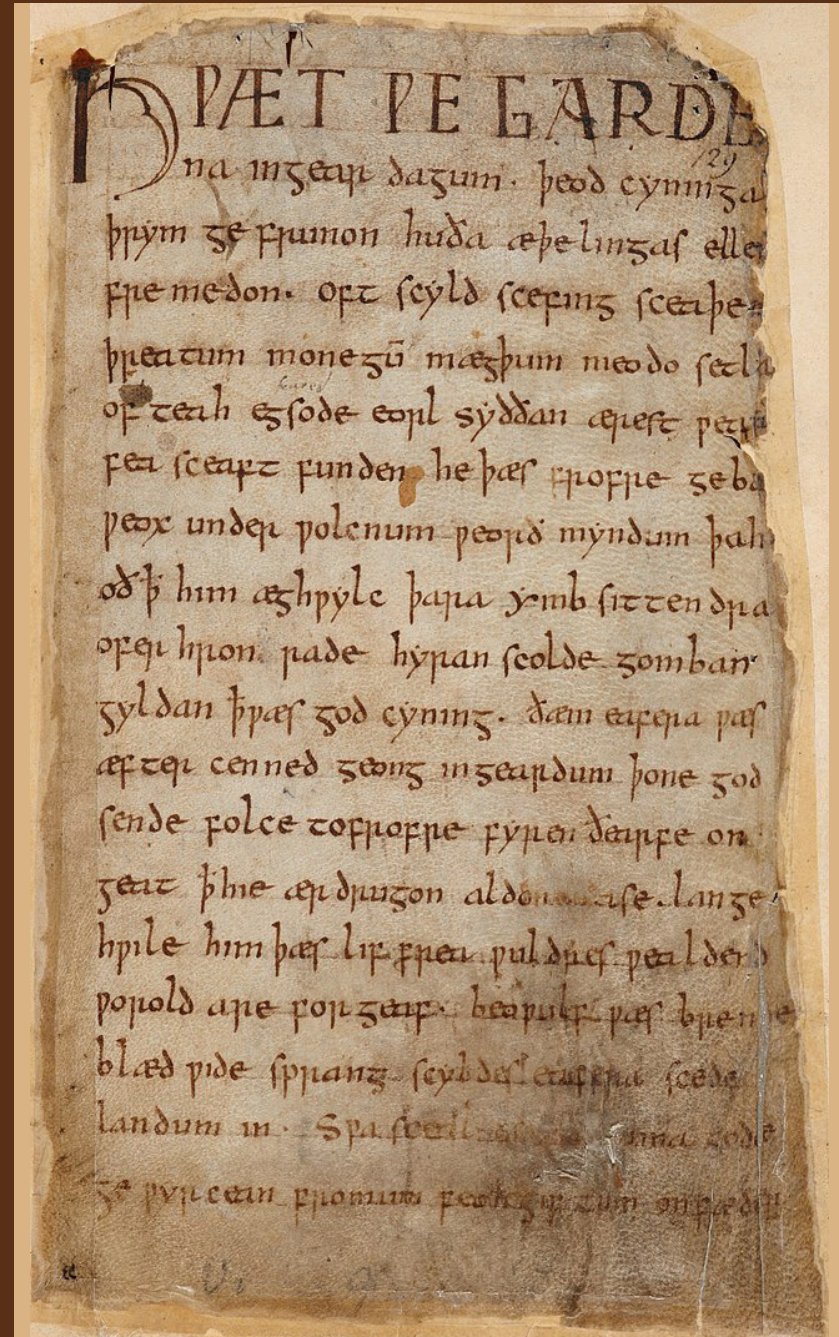 HǷÆT ǷE GARDE
129
na ingear dagum. þeod cyninga
þrym ge frunon huða æþelingas elle
fremedon. oft scyld scefing sceaþe
þreatum monegū mægþum meodo setla
of teah egsode eorl syððan ærest ƿear
fea sceaft funden he þæs frofre geba
ƿeox under ƿolcnum ƿeorð myndum þah
oð ꝥ him æghƿylc þara ymb sittendra
ofer hron rade hyran scolde gomban
gyldan ꝥ ƿæs god cyning. ðæm eafera ƿæs
æfter cenned geong ingeardum þone god
sende folce tofrofre fyren ðearfe on
geat ꝥ hie ær drugon aldor ase. lange
hƿile him þæs lif frea ƿuldres ƿealdend
ƿorold are for geaf. beoƿulf ƿæs breme
blæd ƿide sprang scyldes eafera scede
landum in. Sƿa sceal gode
ge ƿyrcean fromum feoh giftum on fæder